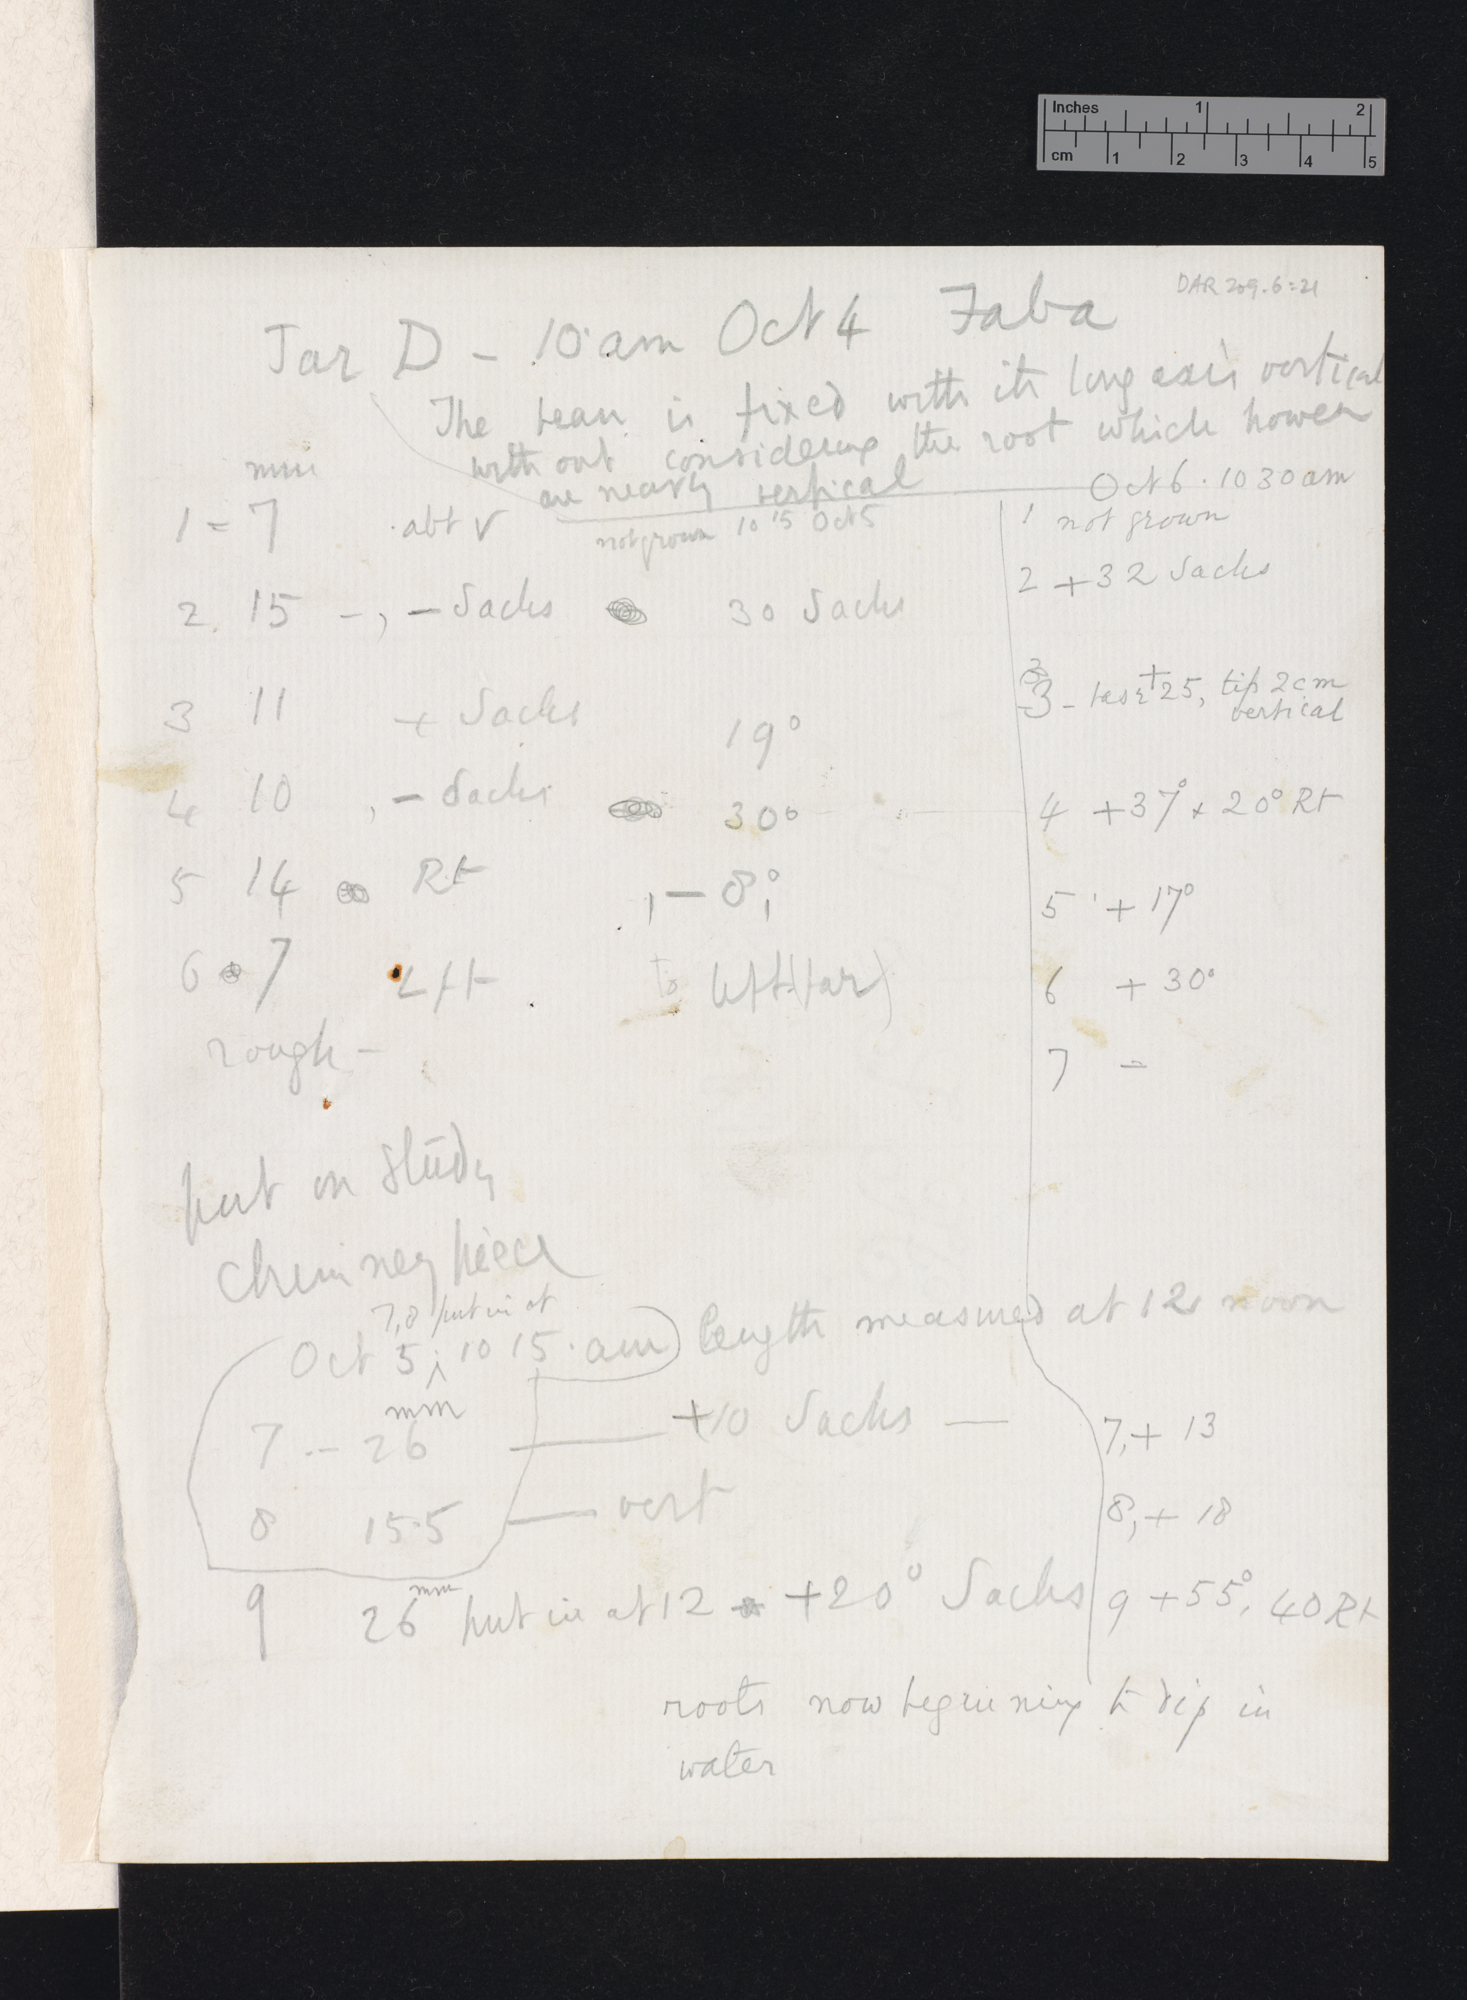 Inches 1 2
cm 1 2 3 4 5
DAR 209.6:21
Jar D - 10 am Oct 4 Faba
The bean is fixed with its long axis vertical
without considering the root which howev
are nearly vertical
Oct 6. 10 30 am
mm
1 = 7 abt V not grown 10 15 Oct 5 1 not grown
2. 15 -, - Sachs 30 Sachs 2 + 32 Sachs
3 11 + Sachs 19° 3 - base + 25, tip 2 cm
vertical
4 10 , - Sachs 30° 4 + 37° + 20° Rt
5 14 Rt , - 8°, 5 + 17°
6 7 Lft To left (far) 6 + 30°
rough - 7 =
put on Study
Chimney piece
7,8 put in at
Oct 5, 10 15. am) length measured at 12 noon
mm
7 -- 26 — +10 Sachs — 7, + 13
8 15.5 — vert 8, + 18
9 26 mm put in at 12 +20° Sachs 9 + 55°, 40 Rt
roots now beginning to dip in
water